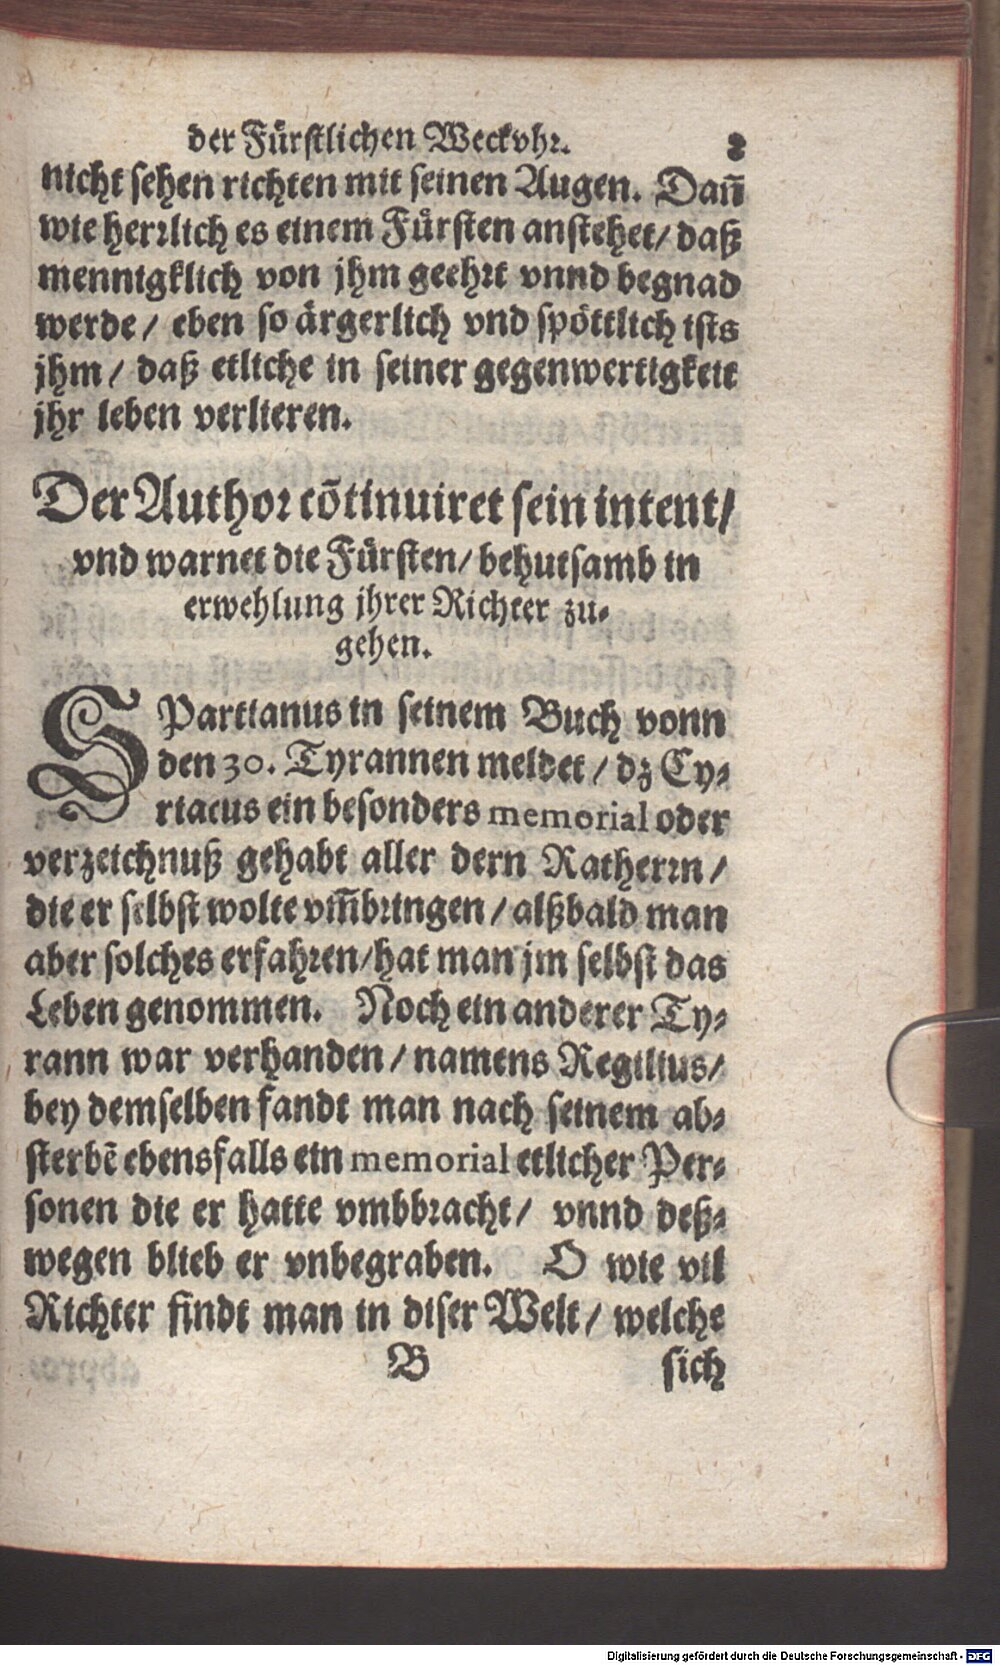 der Fürstlichen Weckvhr. 2
nicht sehen richten mit seinen Augen. Dañ
wie herrlich es einem Fürsten anstehet/ daß
mennigklich von jhm geehrt vnnd begnad
werde/ eben so ärgerlich vnd spöttlich ists
jhm/ daß etliche in seiner gegenwertigkeit
jhr leben verlieren.
Der Author cõtinuiret sein intent/
vnd warnet die Fürsten/ behutsamb in
erwehlung jhrer Richter zu-
gehen.
SPartianus in seinem Buch vonn
den 30. Tyrannen meldet/ dz Cy-
riacus ein besonders memorial oder
verzeichnuß gehabt aller dern Ratherrn/
die er selbst wolte vm̃bringen/ alßbald man
aber solches erfahren/ hat man jm selbst das
Leben genommen. Noch ein anderer Ty-
rann war verhanden/ namens Regilius/
bey demselben fandt man nach seinem ab-
sterbẽ ebensfalls ein memorial etlicher Per-
sonen die er hatte vmbbracht/ vnnd deß-
wegen blieb er vnbegraben. O wie vil
Richter findt man in diser Welt/ welche
B sich
Digitalisierung gefördert durch die Deutsche Forschungsgemeinschaft - DFG